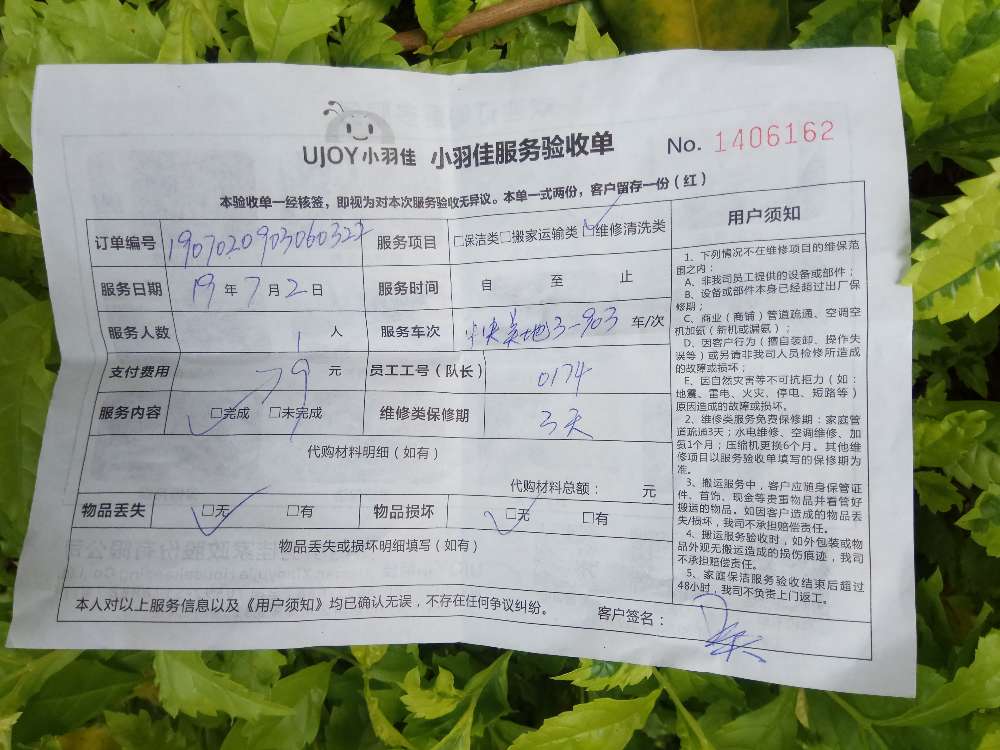 UJOY小羽佳 小羽佳服务验收单 No. 1406162
本验收单一经核签，即视为对本次服务验收无异议。本单一式两份，客户留存一份（红）
订单编号 190702090306032 服务项目 □保洁类□搬家运输类□维修清洗类
服务日期 19 年 7 月 2 日 服务时间 自 至 止
服务人数 1 人 服务车次 中央美地3-903 车/次
支付费用 79 元 员工工号（队长） 0174
服务内容 □完成 □未完成 维修类保修期 3天
代购材料明细（如有）
代购材料总额： 元
物品丢失 □无 □有 物品损坏 □无 □有
物品丢失或损坏明细填写（如有）
本人对以上服务信息以及《用户须知》均已确认无误，不存在任何争议纠纷。 客户签名：
用户须知
1、下列情况不在维修项目的维保范
围之内：
A、非我司员工提供的设备或部件；
B、设备或部件本身已经超过出厂保
修期；
C、商业（商铺）管道疏通、空调空
机加氨（新机或漏氨）；
D、因客户行为（擅自装卸、操作失
误等）或另请非我司人员检修所造成
的故障或损坏；
E、因自然灾害等不可抗拒力（如：
地震、雷电、火灾、停电、短路等）
原因造成的故障或损坏。
2、维修类服务免费保修期：家庭管
道疏通3天；水电维修、空调维修、加
氨1个月；压缩机更换6个月。其他维
修项目以服务验收单填写的保修期为
准。
3、搬运服务中，客户应随身保管证
件、首饰、现金等贵重物品并看管好
搬运的物品。如因客户造成的物品丢
失/损坏，我司不承担赔偿责任。
4、搬运服务验收时，如外包装或物
品外观无搬运造成的损伤痕迹，我司
不承担赔偿责任。
5、家庭保洁服务验收结束后超过
48小时，我司不负责上门返工。